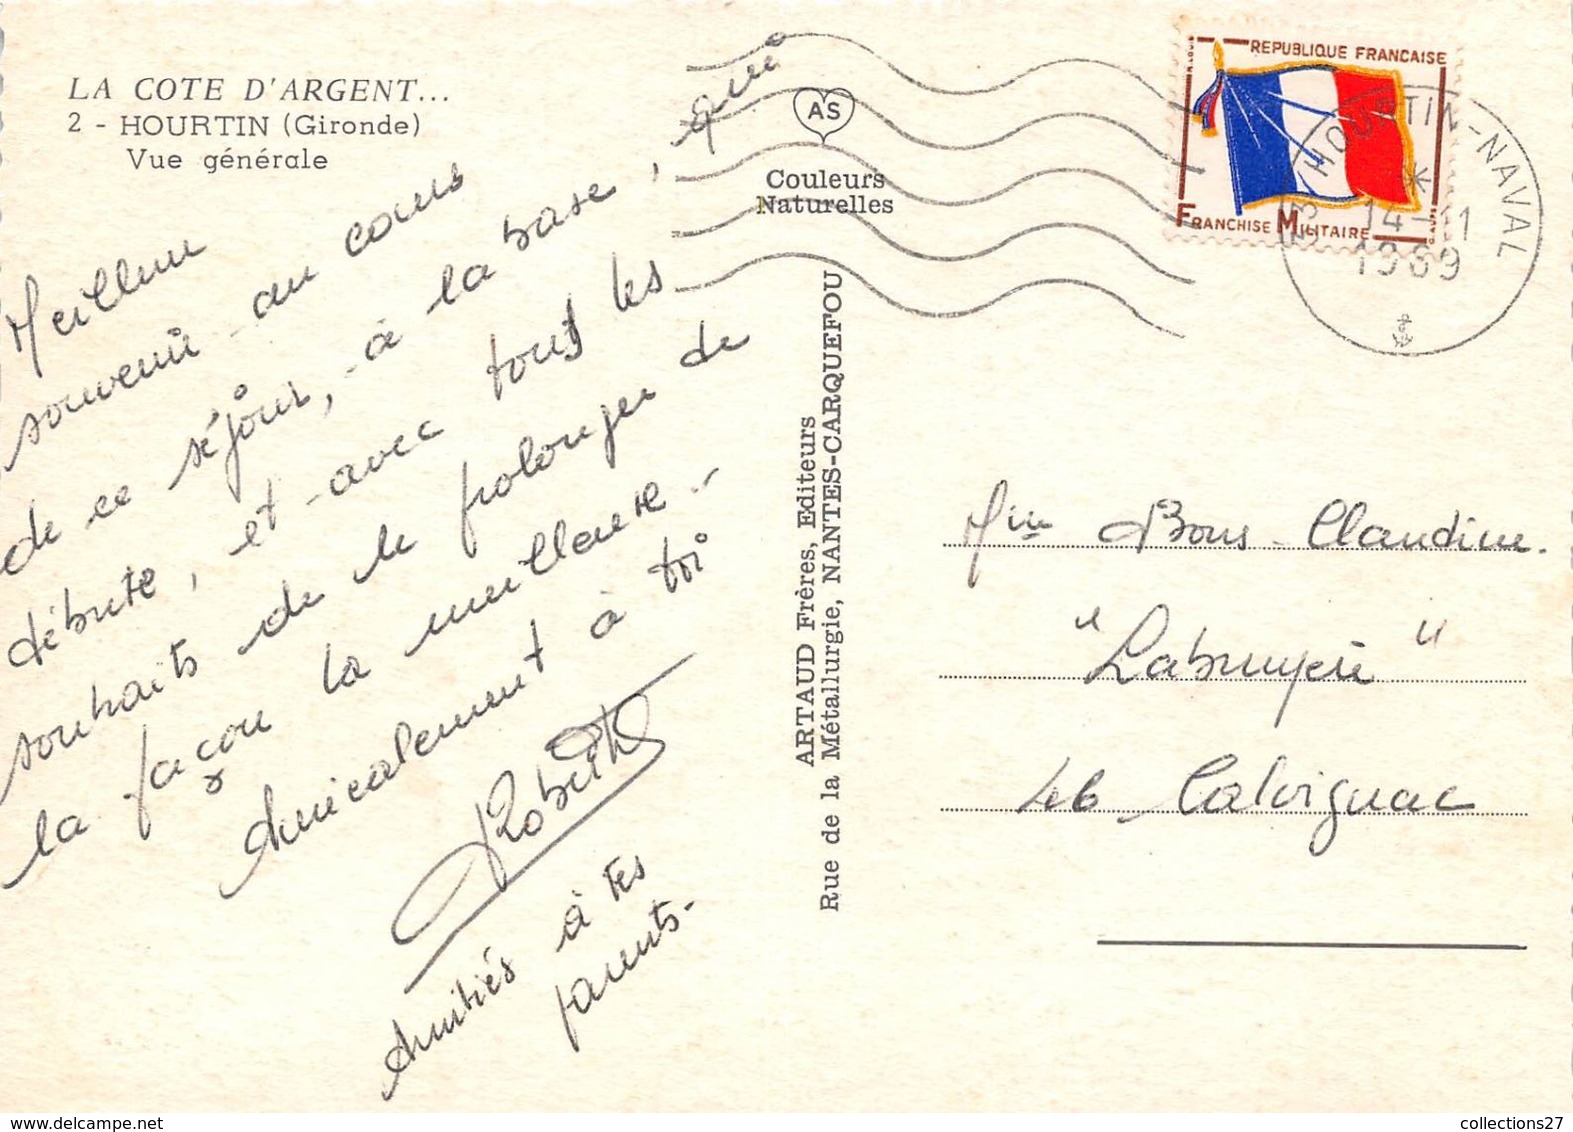 LA COTE D'ARGENT...
2 - HOURTIN (Gironde)
Vue générale
AS
Couleurs
Naturelles
REPUBLIQUE FRANÇAISE
FRANCHISE MILITAIRE
33 HOURTIN-NAVAL
14-11
1969
Meilleur
souvenir au cours
de ce séjour, à la base, qui
débute, et avec tous les
souhaits de le prolonger de
la façon la meilleure -
Amicalement à toi
Amitiés à tes
parents.
ARTAUD Frères, Editeurs
Rue de la Métallurgie, NANTES-CARQUEFOU
Mlle Bous Claudine.
"Labruyère"
46 Calvignac
collections27